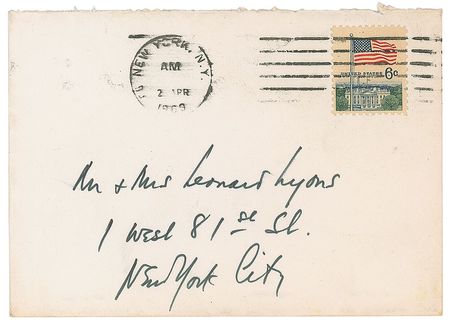 NEW YORK, N.Y.
AM
2 APR
1969
UNITED STATES
6c
Mr + Mrs Leonard Lyons
1 West 81st St.
New York City